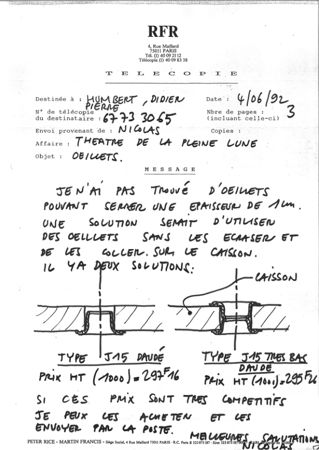 RFR
4, Rue Maillard
75011 PARIS
TELECOPIE
Destinée à : HUMBERT, DIDIER
PIERRE
Date : 4/06/92
N° de télécopie
du destinataire : 67 73 30 65
Nbre de pages : 3
(incluant celle-ci)
Envoi provenant de : NICOLAS
Copies :
Affaire : THEATRE DE LA PLEINE LUNE
Objet : OEILLETS.
MESSAGE
JE N'AI PAS TROUVÉ D'OEILLETS
POUVANT SERRER UNE EPAISEUR DE 1 cm.
UNE SOLUTION SERAIT D'UTILISER
DES OEILLETS SANS LES ECRASER ET
DE LES COLLER. SUR LE CAISSON.
IL Y A DEUX SOLUTIONS:
CAISSON
TYPE J15 DAUDÉ
PRIX HT (1000) = 297F16
TYPE J15 TRES BAS
DAUDE
PRIX HT (1000) = 295F26
SI CES PRIX SONT TRES COMPETITIFS
JE PEUX LES ACHETER ET LES
ENVOYER PAR LA POSTE.
MEILLEURES SALUTATIONS
NICOLAS
PETER RICE - MARTIN FRANCIS - Siège Social, 4 Rue Maillard 75011 PARIS